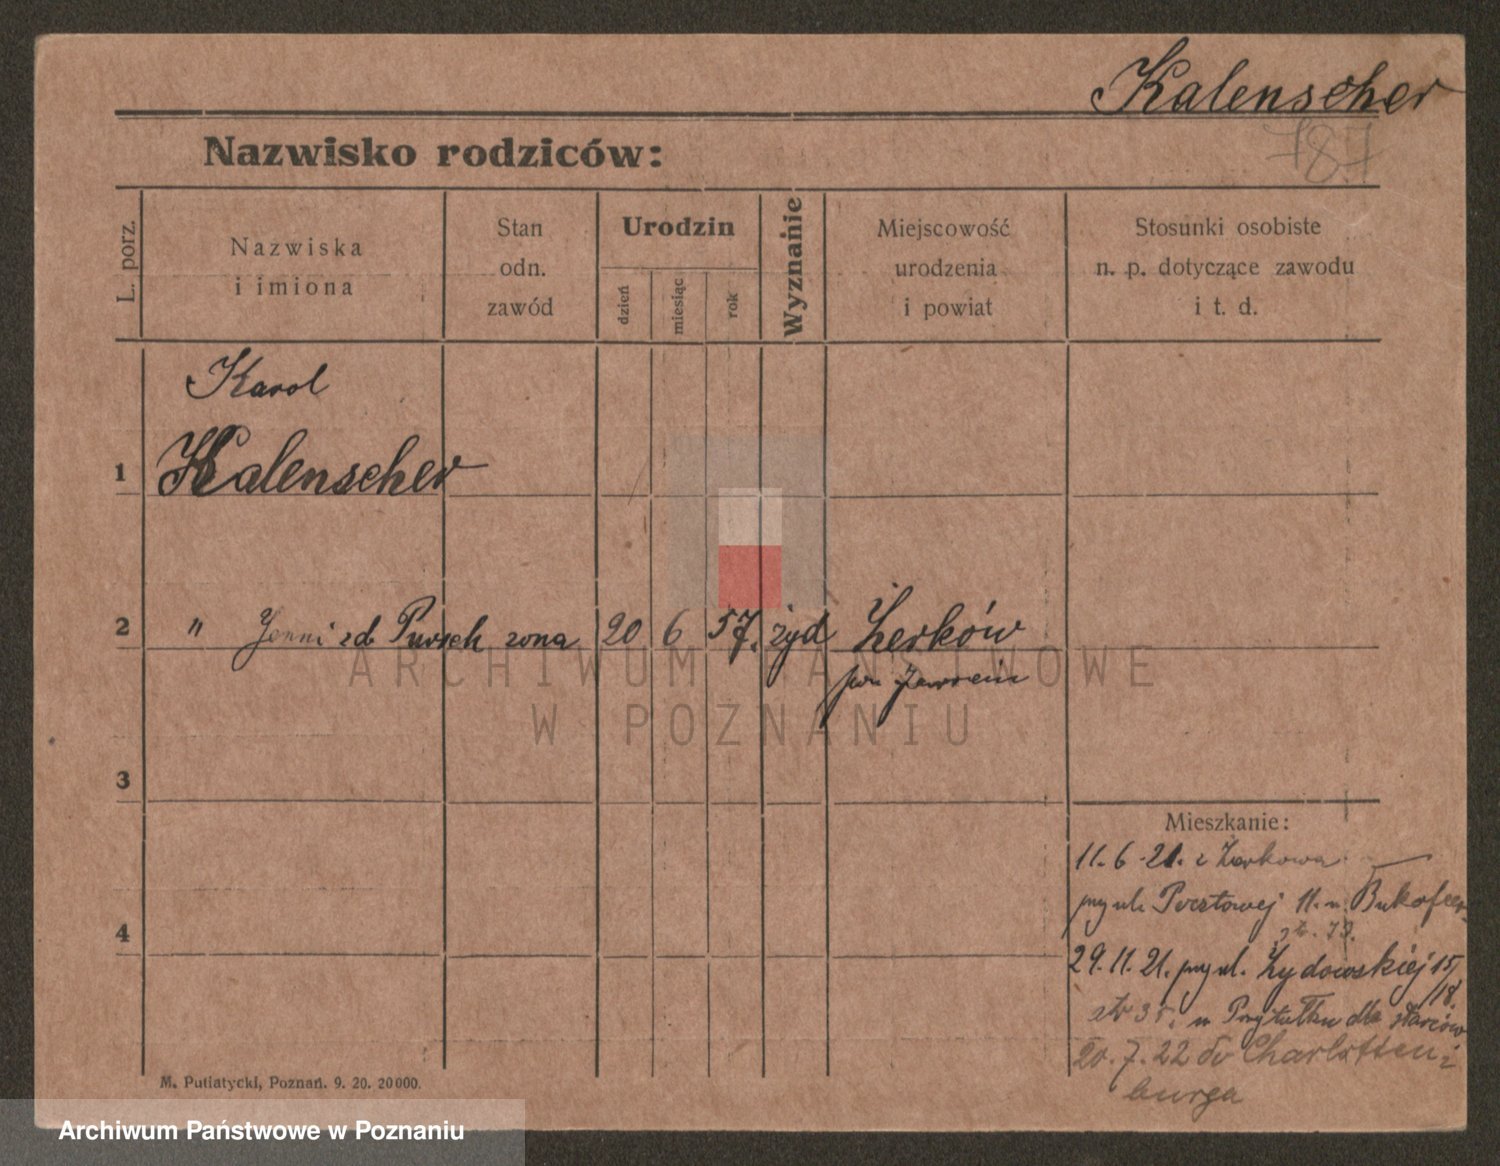 Kalenscher
787
Nazwisko rodziców:
L. porz.
Nazwiska
i imiona
Stan
odn.
zawód
Urodzin
dzień
miesiąc
rok
Wyznanie
Miejscowość
urodzenia
i powiat
Stosunki osobiste
n. p. dotyczące zawodu
i t. d.
Karol
1 Kalenscher
2 " Jenni zd Pursch zona 20 6 57. żyd Żerków
pow
ARCHIWUM PAŃSTWOWE
W POZNANIU
3
Mieszkanie:
11. 6. 21. z Żerkowa
przy ul. Pocztowej 11. u Bukofzer
4
29. 11. 21. przy ul. Żydowskiej 15/18.
w Przytułku dla starców
20. 7. 22 do Charlotten
burga
M. Putiatycki, Poznań. 9. 20. 20000.
Archiwum Państwowe w Poznaniu